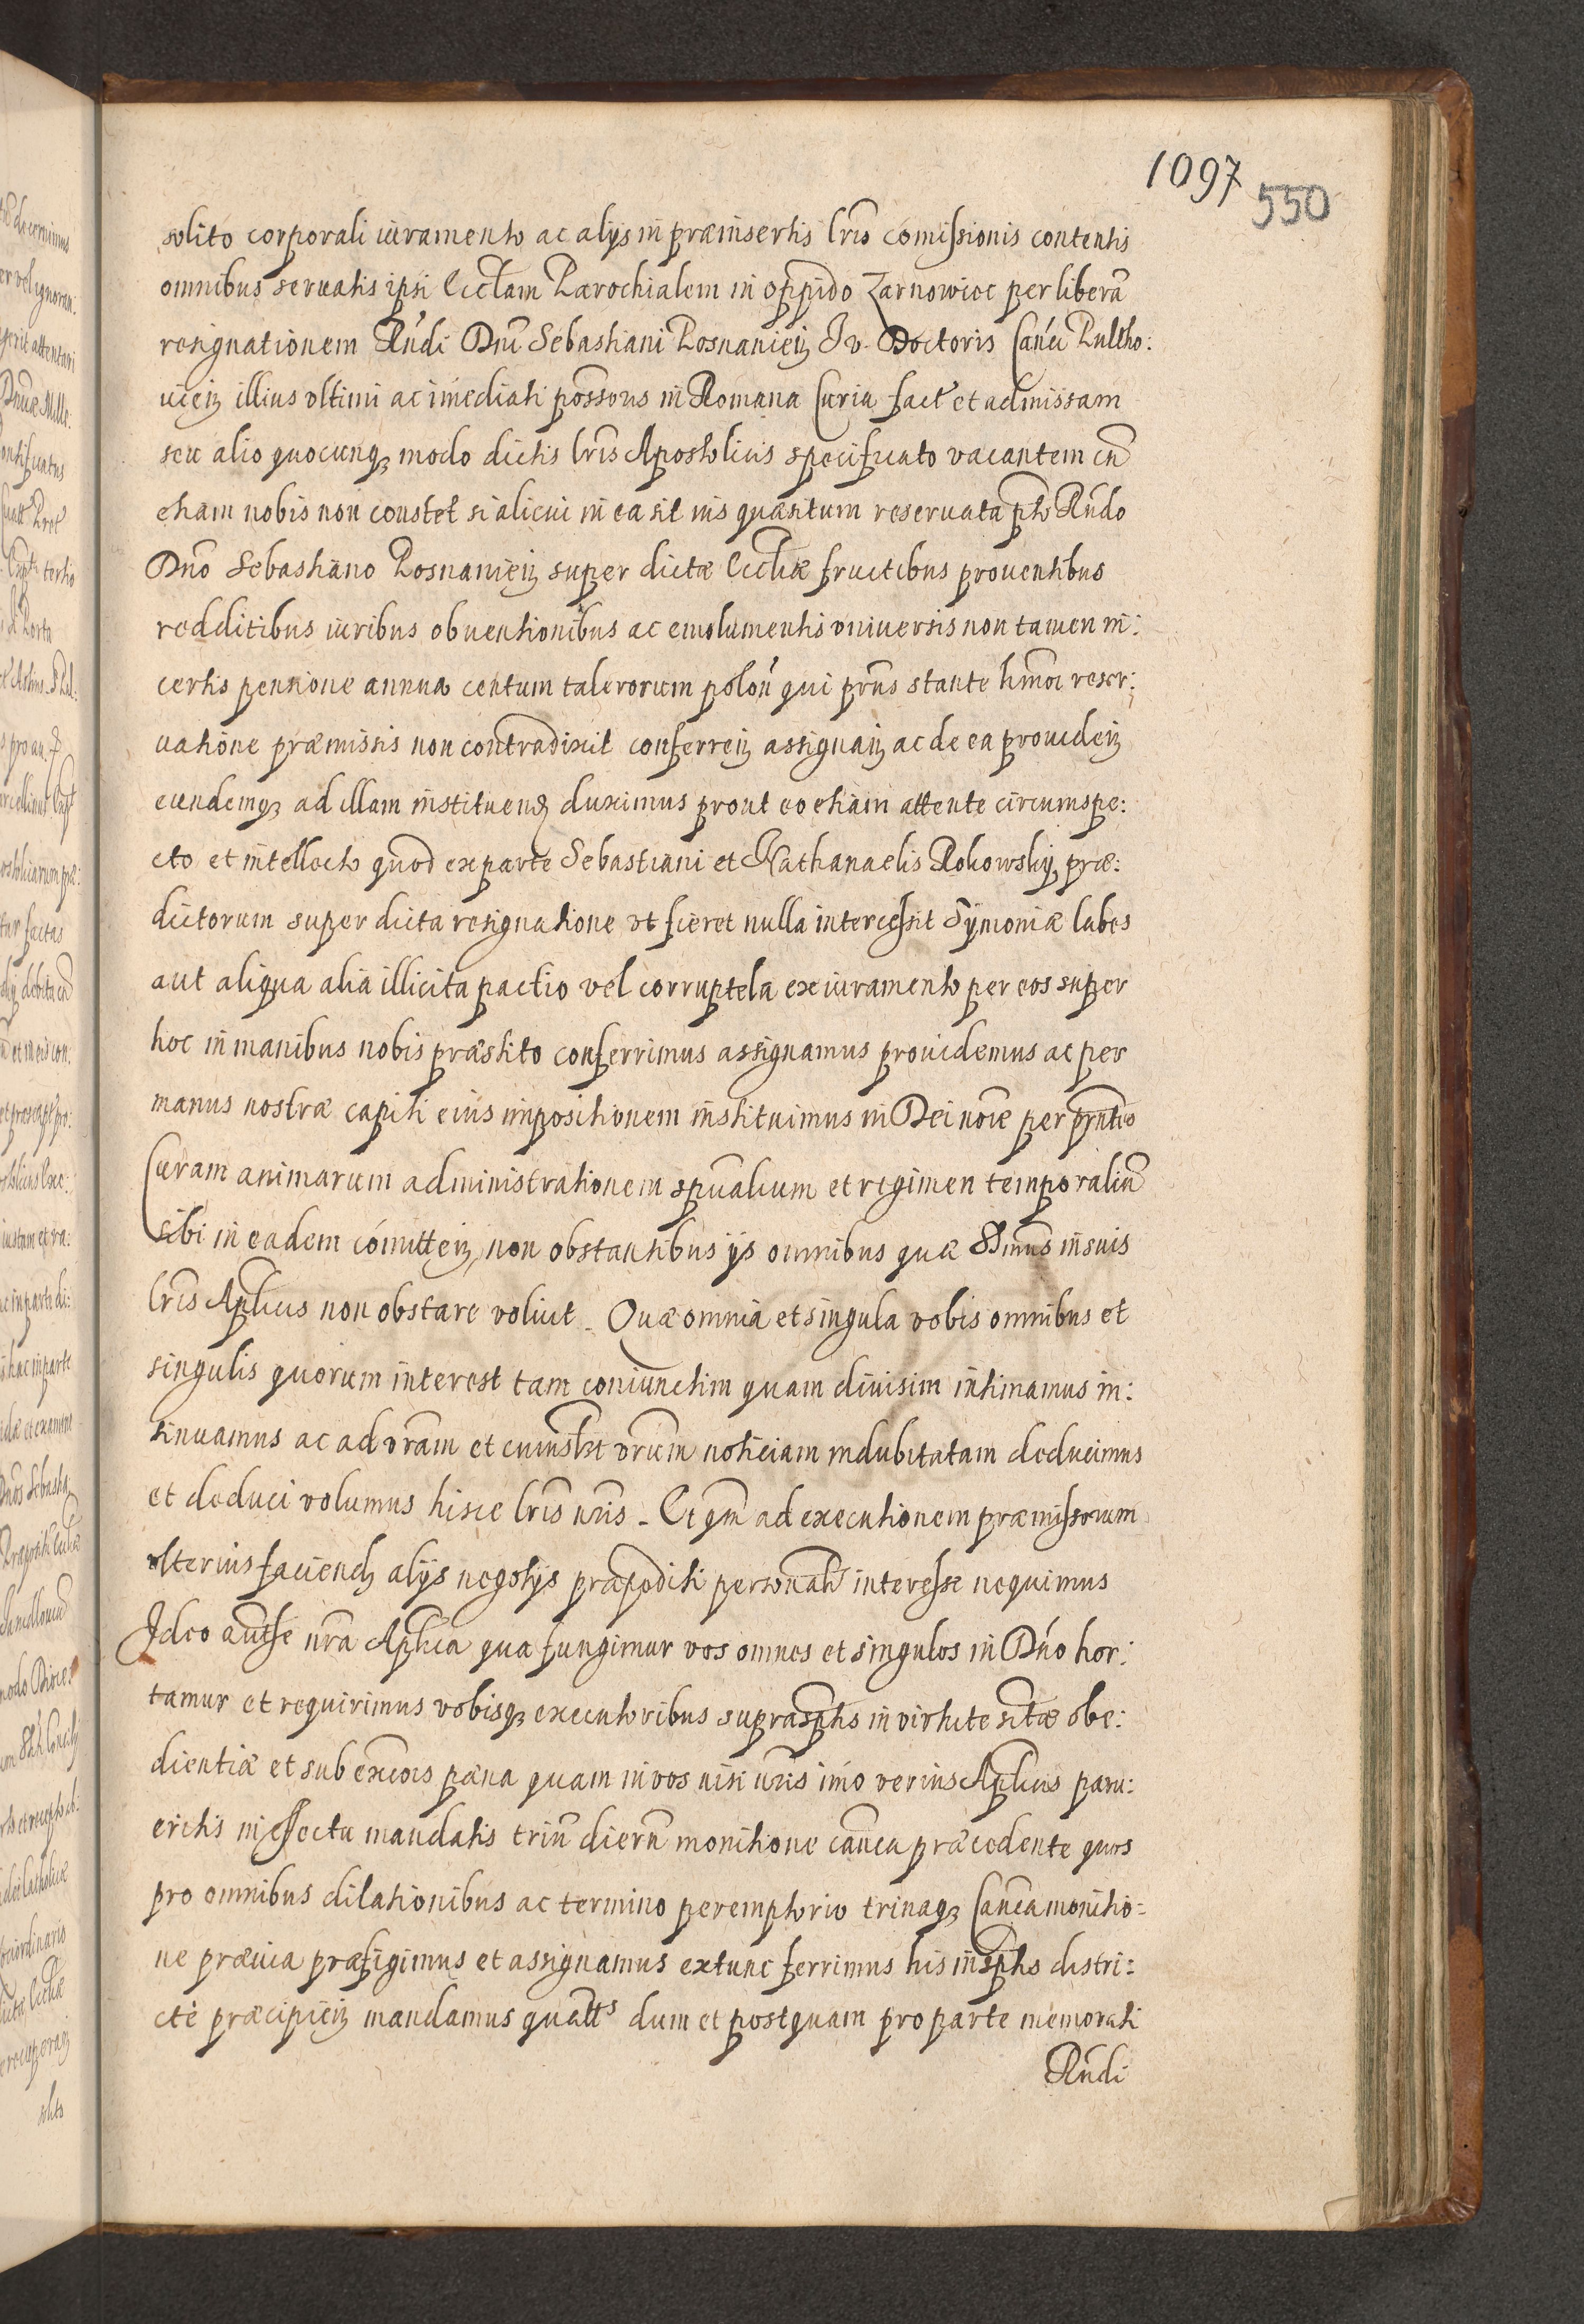 1097
550
solito corporali iuramento ac alijs in præinsertis lris comissionis contentis
omnibus seruatis ipsi Ecclam Parochialem in oppido Zarnowiec per liberã
resignationem Rndi Dni Sebastiani Posnanien Iv. Doctoris Canci Pultho:
uien illius vltimi ac imediati possoris in Romana Curia fact et admissam
seu alio quocunq modo dictis lris Apostolicis specificato vacantem cũ
etiam nobis non constet si alicui in ea sit ius quæsitum reseruata pto Rndo
Dno Sebastiano Posnanien super dictæ Eccliæ fructibus prouentibus
redditibus iuribus obuentionibus ac emolumentis vniuersis non tamen in:
certis pensione annua centum talerorum polon qui prns stante hmoi reser:
uatione præmissis non contradixit conferren assignan ac de ea prouiden
eundemq ad illam instituend duximus prout eo etiam attente circumspe:
cto et intellecto quod ex parte Sebastiani et Nathanaelis Rokowskij præ:
dictorum super dicta resignatione vt fieret nulla intercessit Symoniæ labes
aut aliqua alia illicita pactio vel corruptela ex iuramento per eos super
hoc in manibus nobis præstito conferrimus assignamus prouidemus ac per
manus nostræ capiti eius impositionem instituimus in Dei noie per prntes
Curam animarum administrationem spualium et regimen temporaliũ
sibi in eadem comitten, non obstantibus ijs omnibus quæ SSmus in suis
lris Aplicis non obstare voluit. Quæ omnia et singula vobis omnibus et
singulis quorum interest tam coniunctim quam diuisim intimamus in:
sinuamus ac ad vram et cuiuslbt vrum noticiam indubitatam deducimus
et deduci volumus hisce lris nris. Et qm ad executionem præmissorum
vlterius faciend alijs negotijs præpediti personalr interesse nequimus
Ideo autte nra Aplica qua fungimur vos omnes et singulos in Dno hor:
tamur et requirimus vobisq executoribus suprasptis in virtute stæ obe:
dientiæ et sub excois pæna quam in vos nisi nris imo verius Aplicis paru:
eritis in effectu mandatis triũ dierũ monitione canca præcedente quos
pro omnibus dilationibus ac termino peremptorio trinaq Canca monitio:
ne præuia præfigimus et assignamus extunc ferrimus his insptis distri:
ctè præcipien mandamus quatts dum et postquam pro parte memorati
Rndi